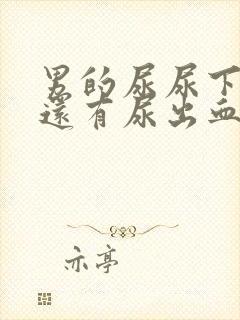 男的尿尿下
還有尿出血
亦亭